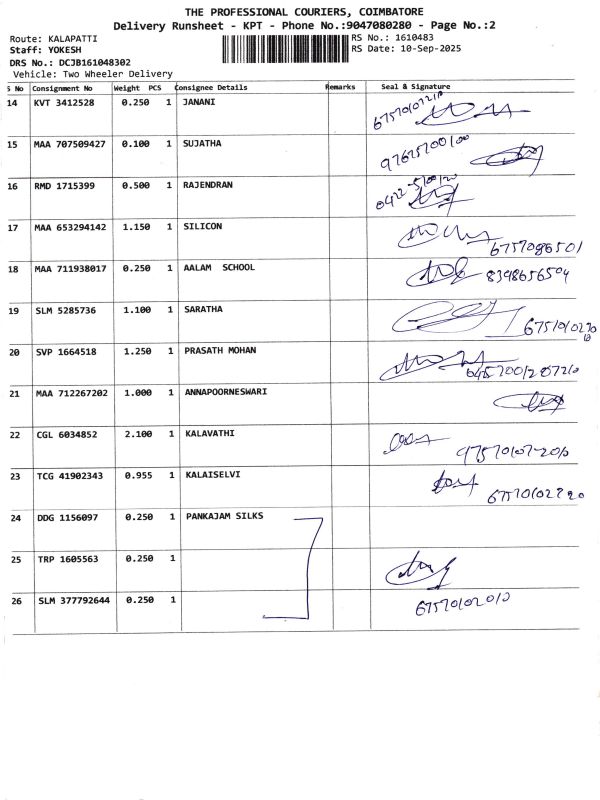 THE PROFESSIONAL COURIERS, COIMBATORE
Delivery Runsheet - KPT - Phone No.:9047080280 - Page No.:2
Route: KALAPATTI RS No.: 1610483
Staff: YOKESH RS Date: 10-Sep-2025
DRS No.: DCJB161048302
Vehicle: Two Wheeler Delivery
S No Consignment No Weight PCS Consignee Details Remarks Seal & Signature
14 KVT 3412528 0.250 1 JANANI
15 MAA 707509427 0.100 1 SUJATHA
16 RMD 1715399 0.500 1 RAJENDRAN
17 MAA 653294142 1.150 1 SILICON
6757086501
18 MAA 711938017 0.250 1 AALAM SCHOOL 8398656504
19 SLM 5285736 1.100 1 SARATHA
20 SVP 1664518 1.250 1 PRASATH MOHAN
21 MAA 712267202 1.000 1 ANNAPOORNESWARI
22 CGL 6034852 2.100 1 KALAVATHI
23 TCG 41902343 0.955 1 KALAISELVI
24 DDG 1156097 0.250 1 PANKAJAM SILKS
25 TRP 1605563 0.250 1
26 SLM 377792644 0.250 1